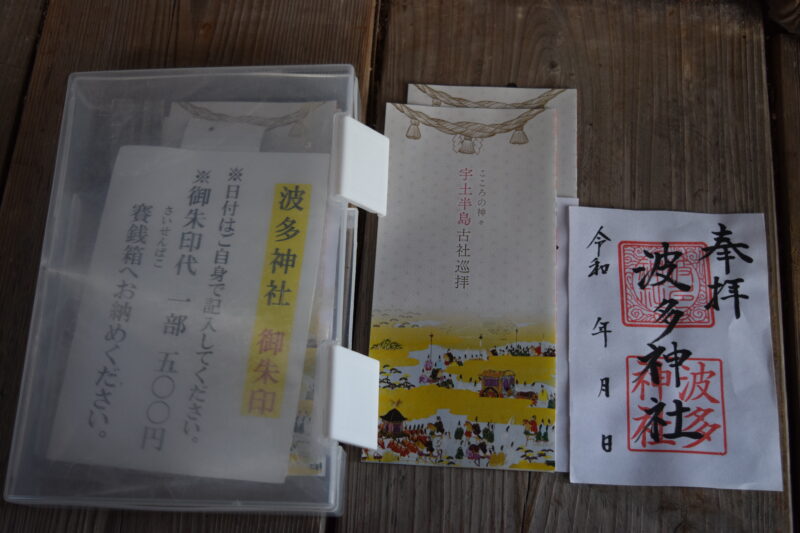 波多神社 御朱印
※日付はご自身で記入してください。
※御朱印代 一部 五〇〇円
さいせんばこ
賽銭箱へお納めください。
こころの神。
宇土半島古社巡拝
奉拝
波多神社
波多
神社
令和 年 月 日